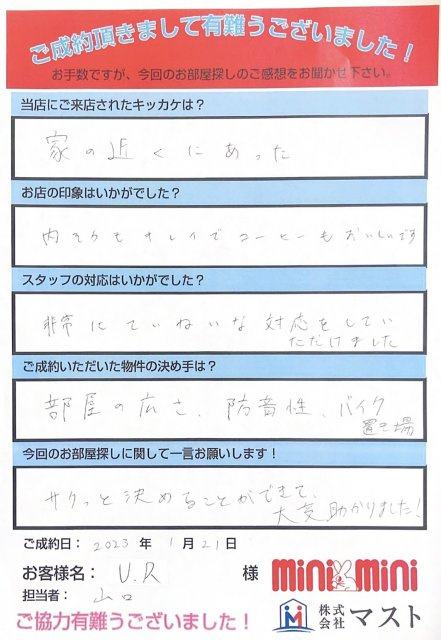 ご成約頂きまして有難うございました！
お手数ですが、今回のお部屋探しのご感想をお聞かせ下さい。
当店にご来店されたキッカケは？
家の近くにあった
お店の印象はいかがでした？
内そうもキレイでコーヒーもおいしいです
スタッフの対応はいかがでした？
非常にていねいな対応をしてい
ただけました
ご成約いただいた物件の決め手は？
部屋の広さ、防音性、バイク
置き場
今回のお部屋探しに関して一言お願いします！
サクっと決めることができて、
大変助かりました！
ご成約日： 2023 年 1月 21日
お客様名： U.R 様
mini mini
担当者： 山口
株式会社 マスト
ご協力有難うございました！